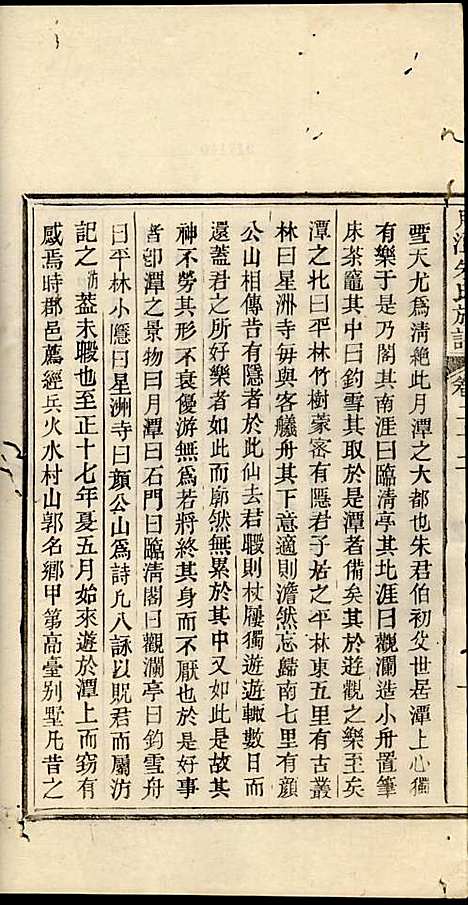 月潭朱氏族譜 卷二十二
雪天尤爲清絶此月潭之大都也朱君伯初父世居潭上心獨
有樂于是乃閣其南涯曰臨清亭其北涯曰觀瀾造小舟置筆
床茶竈其中曰釣雪凡取於是潭者備矣其於遊觀之樂至矣
潭之北曰平林竹樹蒙密有隱君子居之平林東五里有古叢
林曰星洲寺每與客艤舟其下意適則澹然忘歸南七里有顔
公山相傳昔有隱者於此仙去君暇則杖屨獨遊遊輒數日而
還蓋君之所好樂者如此而廓然無累於其中又如此是故其
神不勞其形不衰優游無爲若將終其身而不厭也於是好事
者卽潭之景物曰月潭曰石門曰臨清閣曰觀瀾亭曰釣雪舟
曰平林小隱曰星洲寺曰顔公山爲詩凡八詠以貺君而屬汸
記之汸蓋未暇也至正十七年夏五月始來遊於潭上而窃有
感焉時郡邑薦經兵火水村山郭名鄉甲第高臺别墅凡昔之